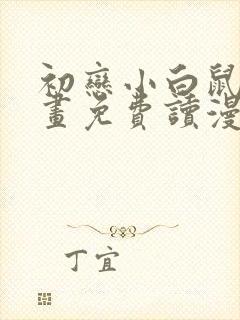 初戀小白鼠
畫免費讀漫
丁宜